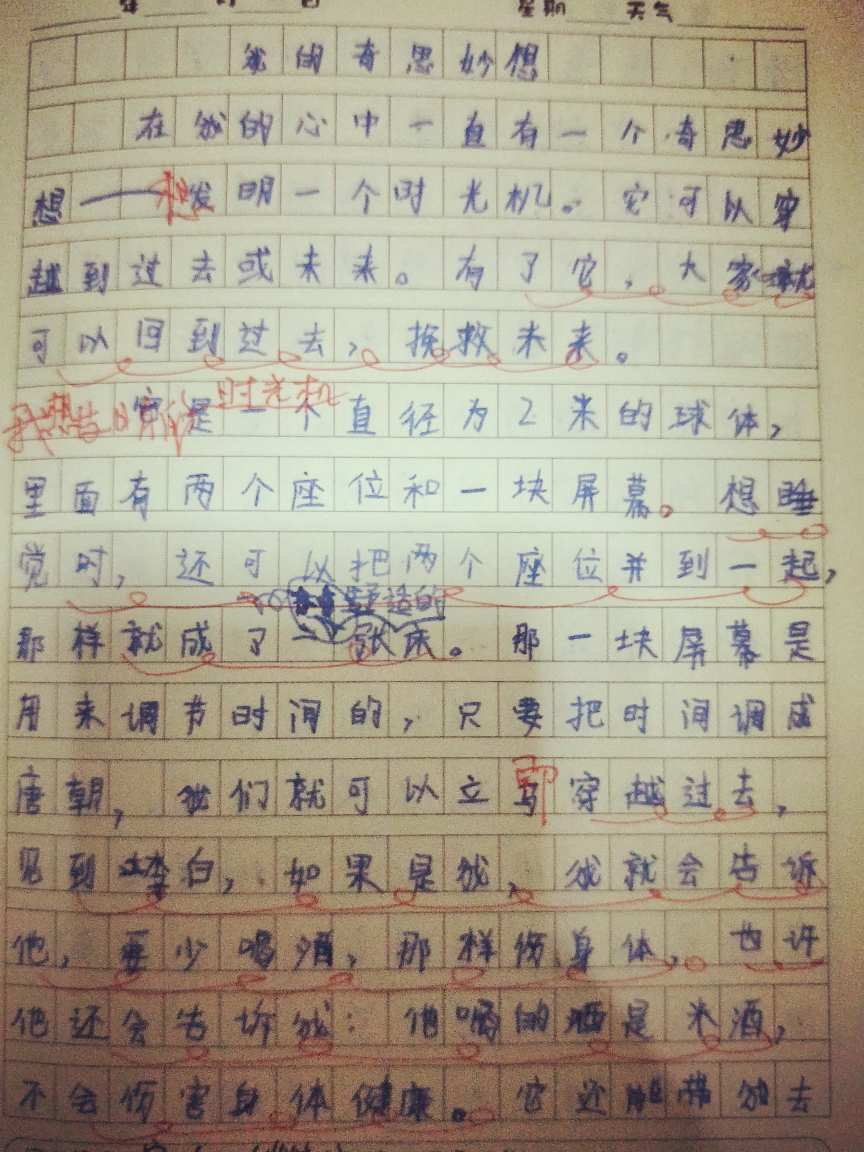 年 月 日 星期 天气
我的奇思妙想
在我的心中一直有一个奇思妙
想——想发明一个时光机。它可以穿
越到过去或未来。有了它,大家就
可以回到过去,挽救未来。
我想 的 时光机
是一个直径为2米的球体,
里面有两个座位和一块屏幕。想睡
觉时,还可以把两个座位并到一起,
舒适的
那样就成了一张床。那一块屏幕是
用来调节时间的,只要把时间调成
唐朝,我们就可以立马穿越过去,
即
见到李白,如果是我,我就会告诉
他,要少喝酒,那样伤身体,也许
他还会告诉我:他喝的酒是米酒,
不会伤害身体健康。它还能带我去